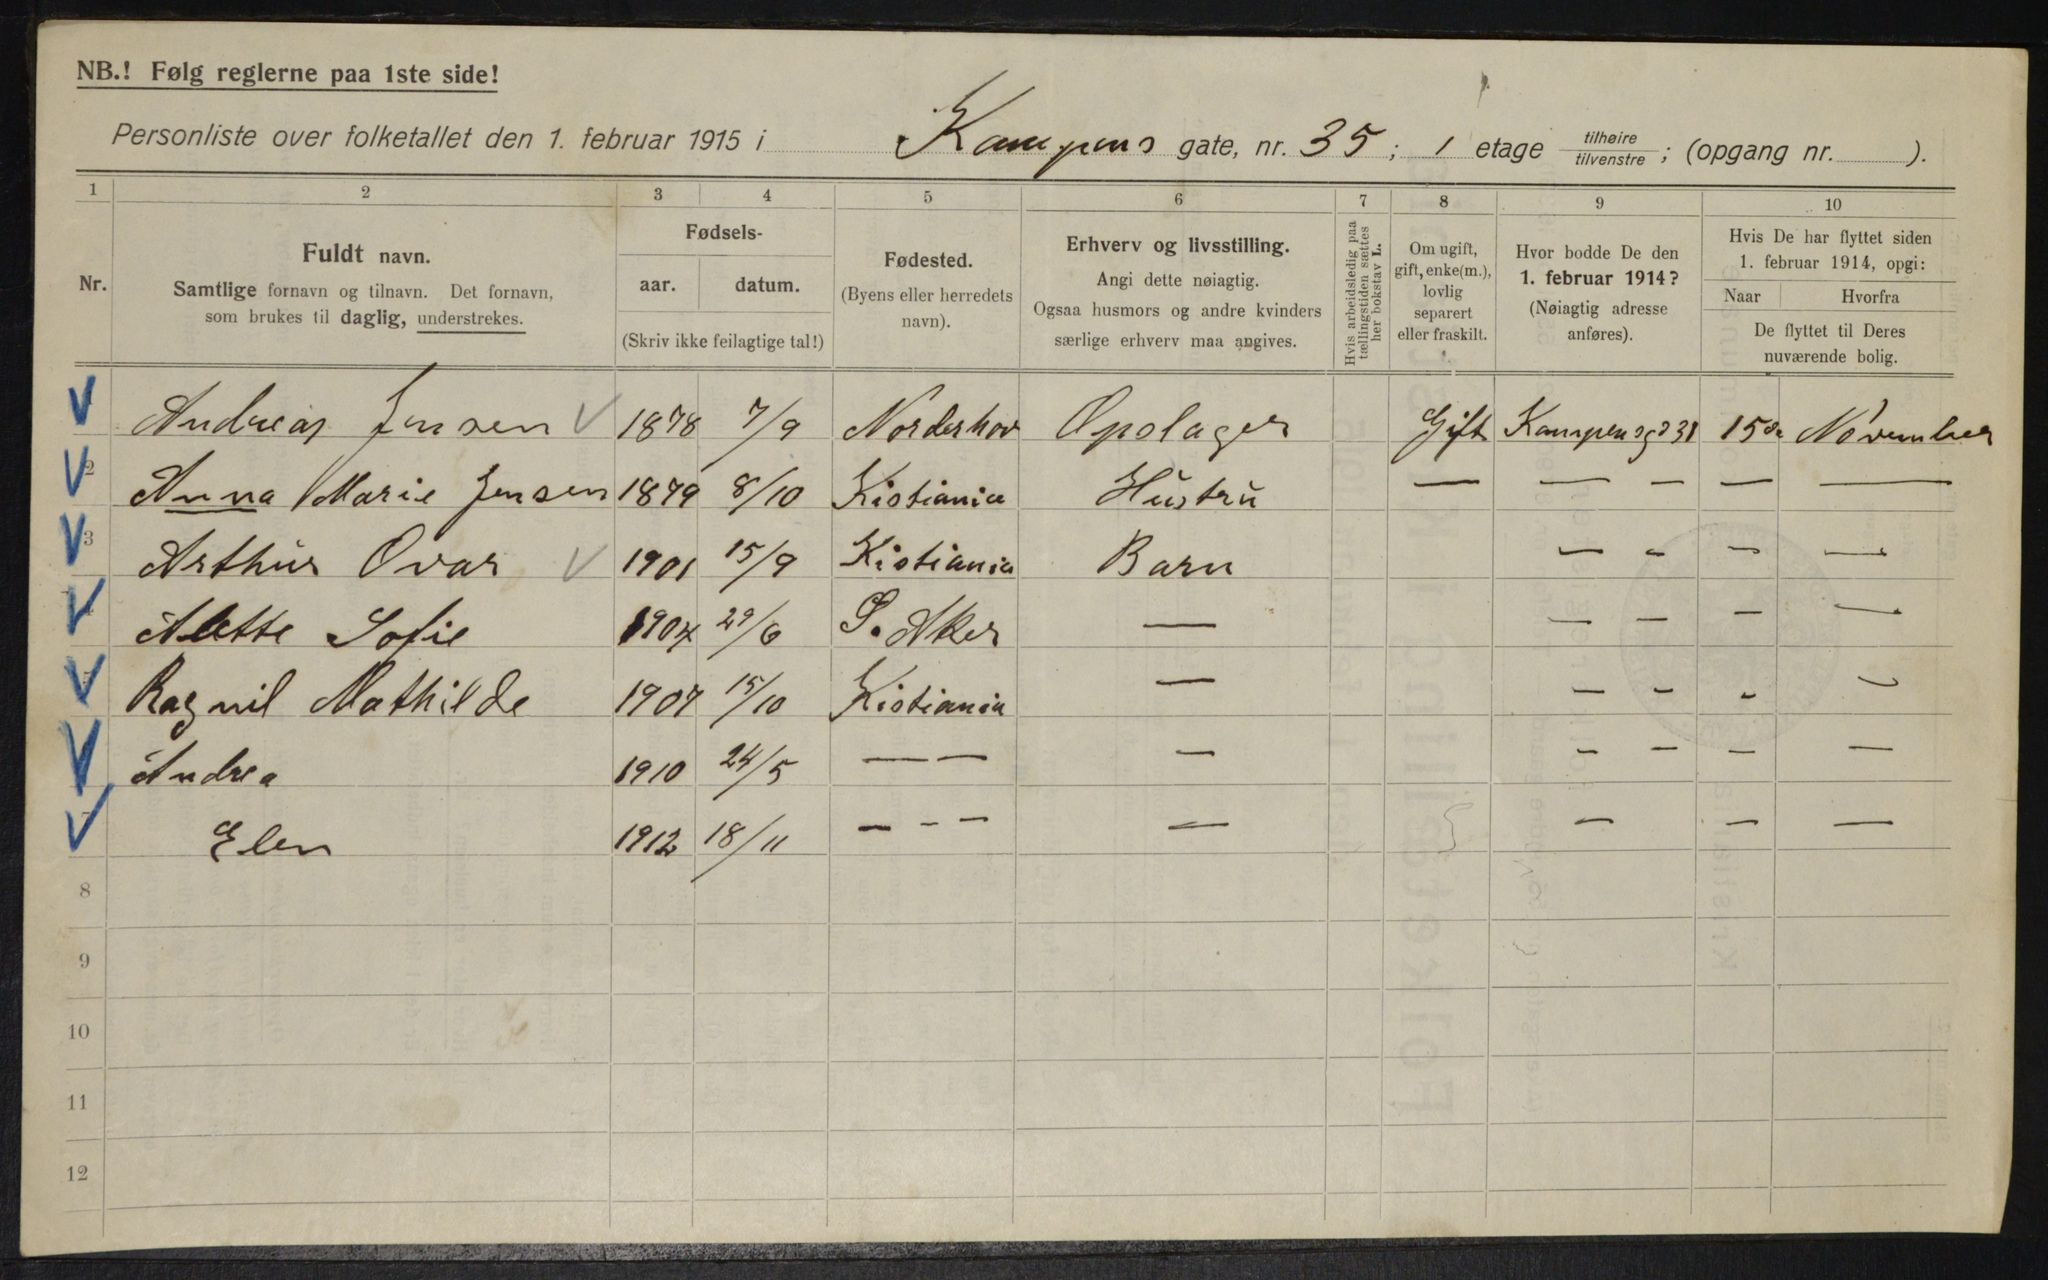 NB.! Følg reglerne paa 1ste side!
Personliste over folketallet den 1. februar 1915 i Kampens gate, nr. 35; 1 etage tilhøire tilvenstre; (opgang nr. ).
1 2 3 4 5 6 7 8 9 10
Nr.
Fuldt navn.
Samtlige fornavn og tilnavn. Det fornavn,
som brukes til daglig, understrekes.
Fødsels-
aar. datum.
(Skriv ikke feilagtige tal!)
Fødested.
(Byens eller herredets
navn).
Erhverv og livsstilling.
Angi dette nøiagtig.
Ogsaa husmors og andre kvinders
særlige erhverv maa angives.
Hvis arbeidsledig paa
tællingstiden sættes
her bokstav L.
Om ugift,
gift, enke(m.),
lovlig
separert
eller fraskilt.
Hvor bodde De den
1. februar 1914?
(Nøiagtig adresse
anføres).
Hvis De har flyttet siden
1. februar 1914, opgi:
Naar Hvorfra
De flyttet til Deres
nuværende bolig.
Andreas Jensen 1878 7/9 Norderhov Opslager Gift Kampensgd 31 15de November
2 Anna Marie Jensen 1879 8/10 Kistiania Hustru — — — — —
3 Arthur Ovar 1901 15/9 Kistiania Barn — - — —
Alette Sofie 1904 29/6 S. Aker — — — — —
Ragnil Mathilde 1907 15/10 Kistiania — — - - —
Andrea 1910 24/5 — — — - — — —
Elen 1912 18/11 — - — — — — —
8
9
10
11
12